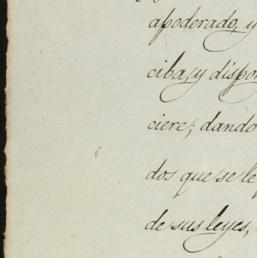 apoderado, y
ciba, y dispon
ciere; dando
dos que se le
de sus leyes,